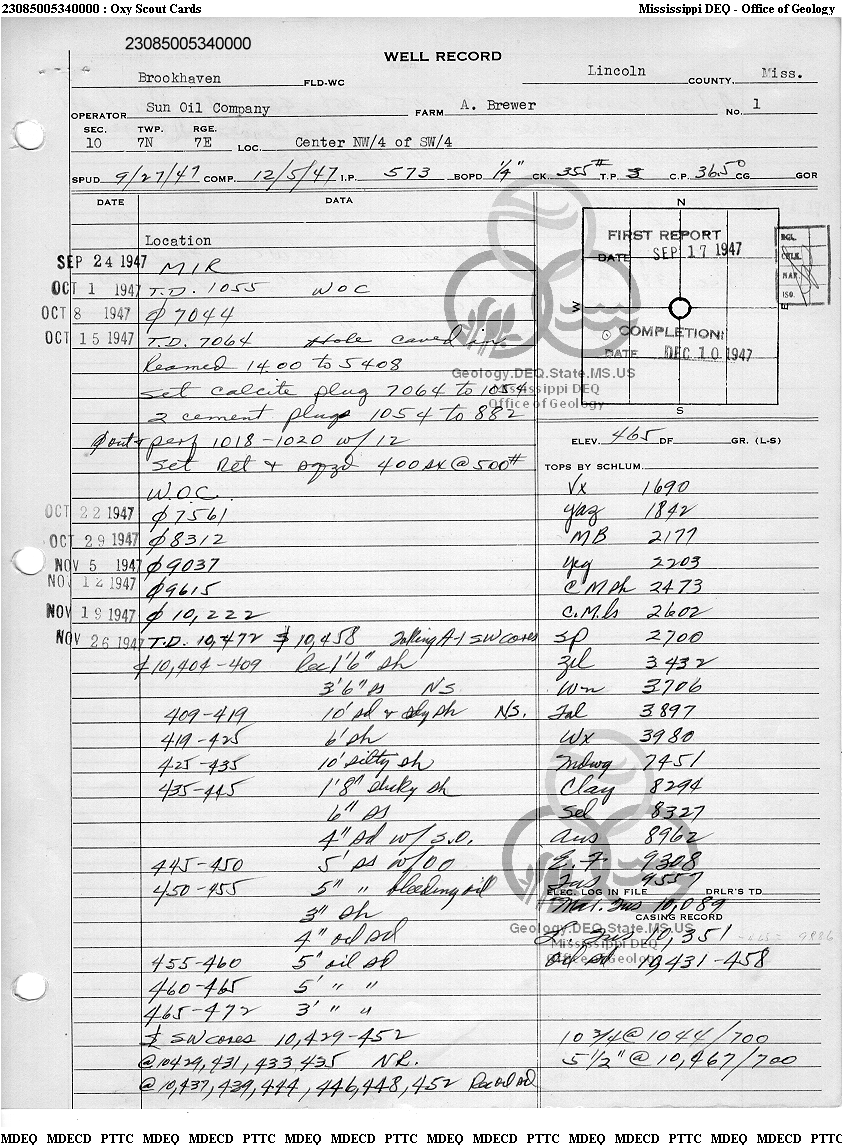 23085005340000 : Oxy Scout Cards
Mississippi DEQ - Office of Geology
23085005340000
WELL RECORD
Brookhaven FLD-WC Lincoln COUNTY, Miss.
OPERATOR Sun Oil Company FARM A. Brewer No. 1
SEC. TWP. RGE.
10 7N 7E LOC. Center NW/4 of SW/4
SPUD 9/27/47 COMP. 12/5/47 I.P. 573 BOPD 1/4" CK 355# T.P. C.P. 36.5° CG GOR
DATE DATA
Location
SEP 24 1947 MIR
OCT 1 1947 T.D. 1055 WOC
OCT 8 1947 ϕ 7044
OCT 15 1947 T.D. 7064 Hole caved in
Reamed 1400 to 5408
set calcite plug 7064 to 1054
2 cement plugs 1054 to 882
ϕ out & perf 1018-1020 w/12
Set Ret & sqzd 400 sx @ 500#
W.O.C.
OCT 22 1947 ϕ 7561
OCT 29 1947 ϕ 8312
NOV 5 1947 ϕ 9037
NOV 12 1947 ϕ 9615
NOV 19 1947 ϕ 10,222
NOV 26 1947 T.D. 10,472 $ 10,458 Taking A-1 SW cores
10,404-409 Rec 1'6" sh
3'6" ss NS
409-419 10' sd & sdy sh NS.
419-425 6' sh
425-435 10' silty sh
435-445 1'8" sh
6" ss
4" sd w/ S.O.
445-450 5' ss w/OO
450-455 5" " bleeding oil
3" sh
4" oil sd
455-460 5" oil sd
460-465 5' " "
465-472 3' " "
SW cores 10,429-452
@ 10429, 431, 433 435 N.R.
@ 10,437, 439, 444, 446, 448, 452 Rec oil sd
N
FIRST REPORT
DATE SEP 17 1947
W
E
COMPLETION:
DATE DEC 10 1947
S
BGL.
CHLK.
MAP.
ISO.
Geology.DEQ.State.MS.US
Mississippi DEQ
Office of Geology
ELEV. 465 DF GR. (L-S)
TOPS BY SCHLUM.
Vx 1690
Yaz 1842
MB 2177
Yeg 2203
C.M sh 2473
C.M.ls 2602
Sp 2700
Zil 3432
Wn 3706
Tal 3897
Wx 3980
Mdwg 7451
Clay 8294
Sel 8327
Aus 8962
E.F 9308
Tus 9557
ELEC. LOG IN FILE DRLR'S TD
Mar. Tus 10,089
CASING RECORD
L. Tus 10,351
Geology.DEQ.State.MS.US
Mississippi DEQ
Office of Geology
Oil sd 10,431-458
10 3/4 @ 1044/700
5 1/2" @ 10,467/700
MDEQ MDECD PTTC MDEQ MDECD PTTC MDEQ MDECD PTTC MDEQ MDECD PTTC MDEQ MDECD PTTC MDEQ MDECD PTTC